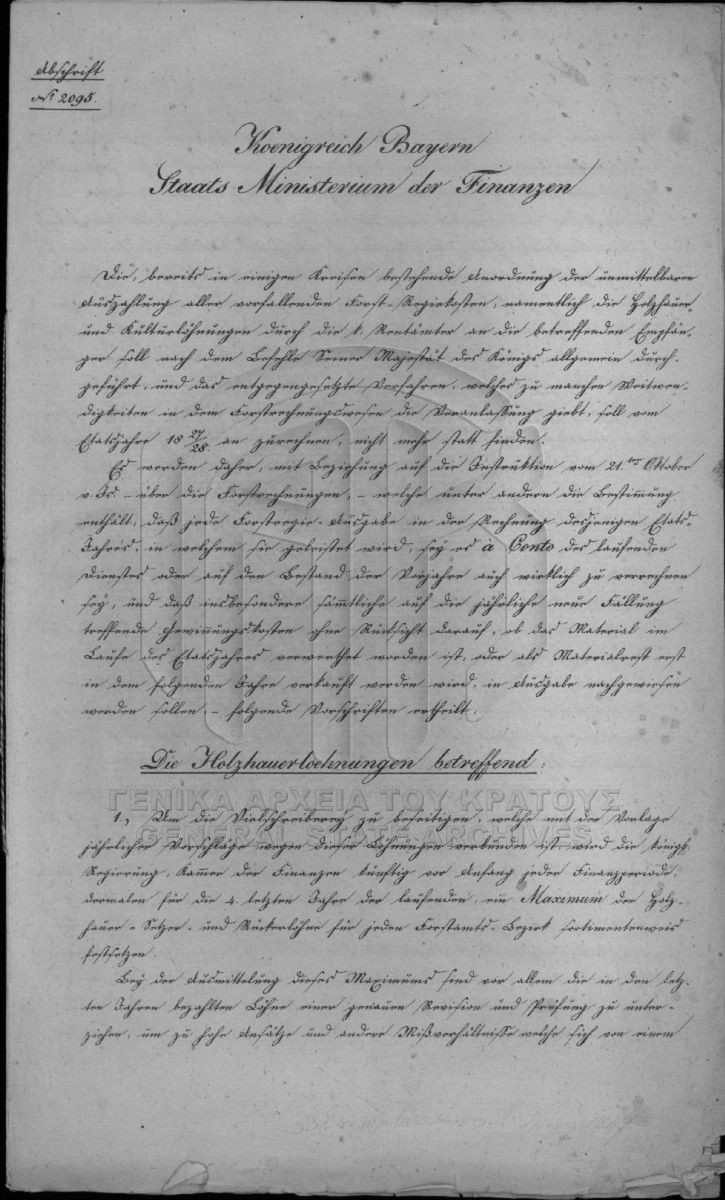 Abschrift
No. 2095.
Koenigreich Bayern
Staats Ministerium der Finanzen
Die, bereits in einigen Kreisen bestehende Anordnung der unmittelbaren
Auszahlung aller vorfallenden Forst-Regiekosten, namentlich die Holzhauer-
und Kulturlöhnungen durch die k. Rentämter an die betreffenden Empfän-
ger soll nach dem Befehle Seiner Majestät des Königs allgemein durch-
geführt, und das entgegengesetzte Verfahren, welches zu manchen Weitwen-
digkeiten in dem Forstrechnungswesen die Veranlassung giebt, soll vom
Etatsjahre 18 27/28 an zurechnen, nicht mehr statt finden.
Es werden daher, mit Beziehung auf die Instruktion vom 21.ten Oktober
v. Js. – über die Forstrechnungen, – welche unter andern die Bestimung
enthält, daß jede Forstregie-Ausgabe in der Rechnung desjenigen Etats-
Jahres, in welchem sie geleistet wird, sey es à Conto des laufenden
Dienstes oder auf den Bestand der Vorjahre auch wirklich zu verrechnen
sey, und daß insbesondere sämmtliche auf die jährliche neue Fällung
treffende Gewinnungskosten ohne Rücksicht darauf, ob das Material im
Laufe des Etatsjahres verwerthet worden ist, oder als Materialrest erst
in dem folgenden Jahre verkauft werden wird, in Ausgabe nachgewiesen
werden sollen, – folgende Vorschriften ertheilt.
Die Holzhauerloehnungen betreffend:
ΓΕΝΙΚΑ ΑΡΧΕΙΑ ΤΟΥ ΚΡΑΤΟΥΣ
GENERAL STATE ARCHIVES
1., Um die Vielschreiberey zu beseitigen, welche mit der Vorlage
jährlicher Vorschläge wegen dieser Löhnungen verbunden ist, wird die königl.
Regierung, Kammer der Finanzen künftig vor Anfang jeder Finanzperiode,
dermalen für die 4 letzten Jahre der laufenden, ein Maximum der Holz-
hauer- Setzer- und Rückerlöhne für jeden Forstamts-Bezirk sortimentenweis
festsetzen.
Bey der Ausmittelung dieses Maximums sind vor allem die in den letz-
ten Jahren bezahlten Löhne einer genauen Revision und Prüfung zu unter-
ziehen, um zu hohe Ansätze und andere Mißverhältnisse welche sich von einem